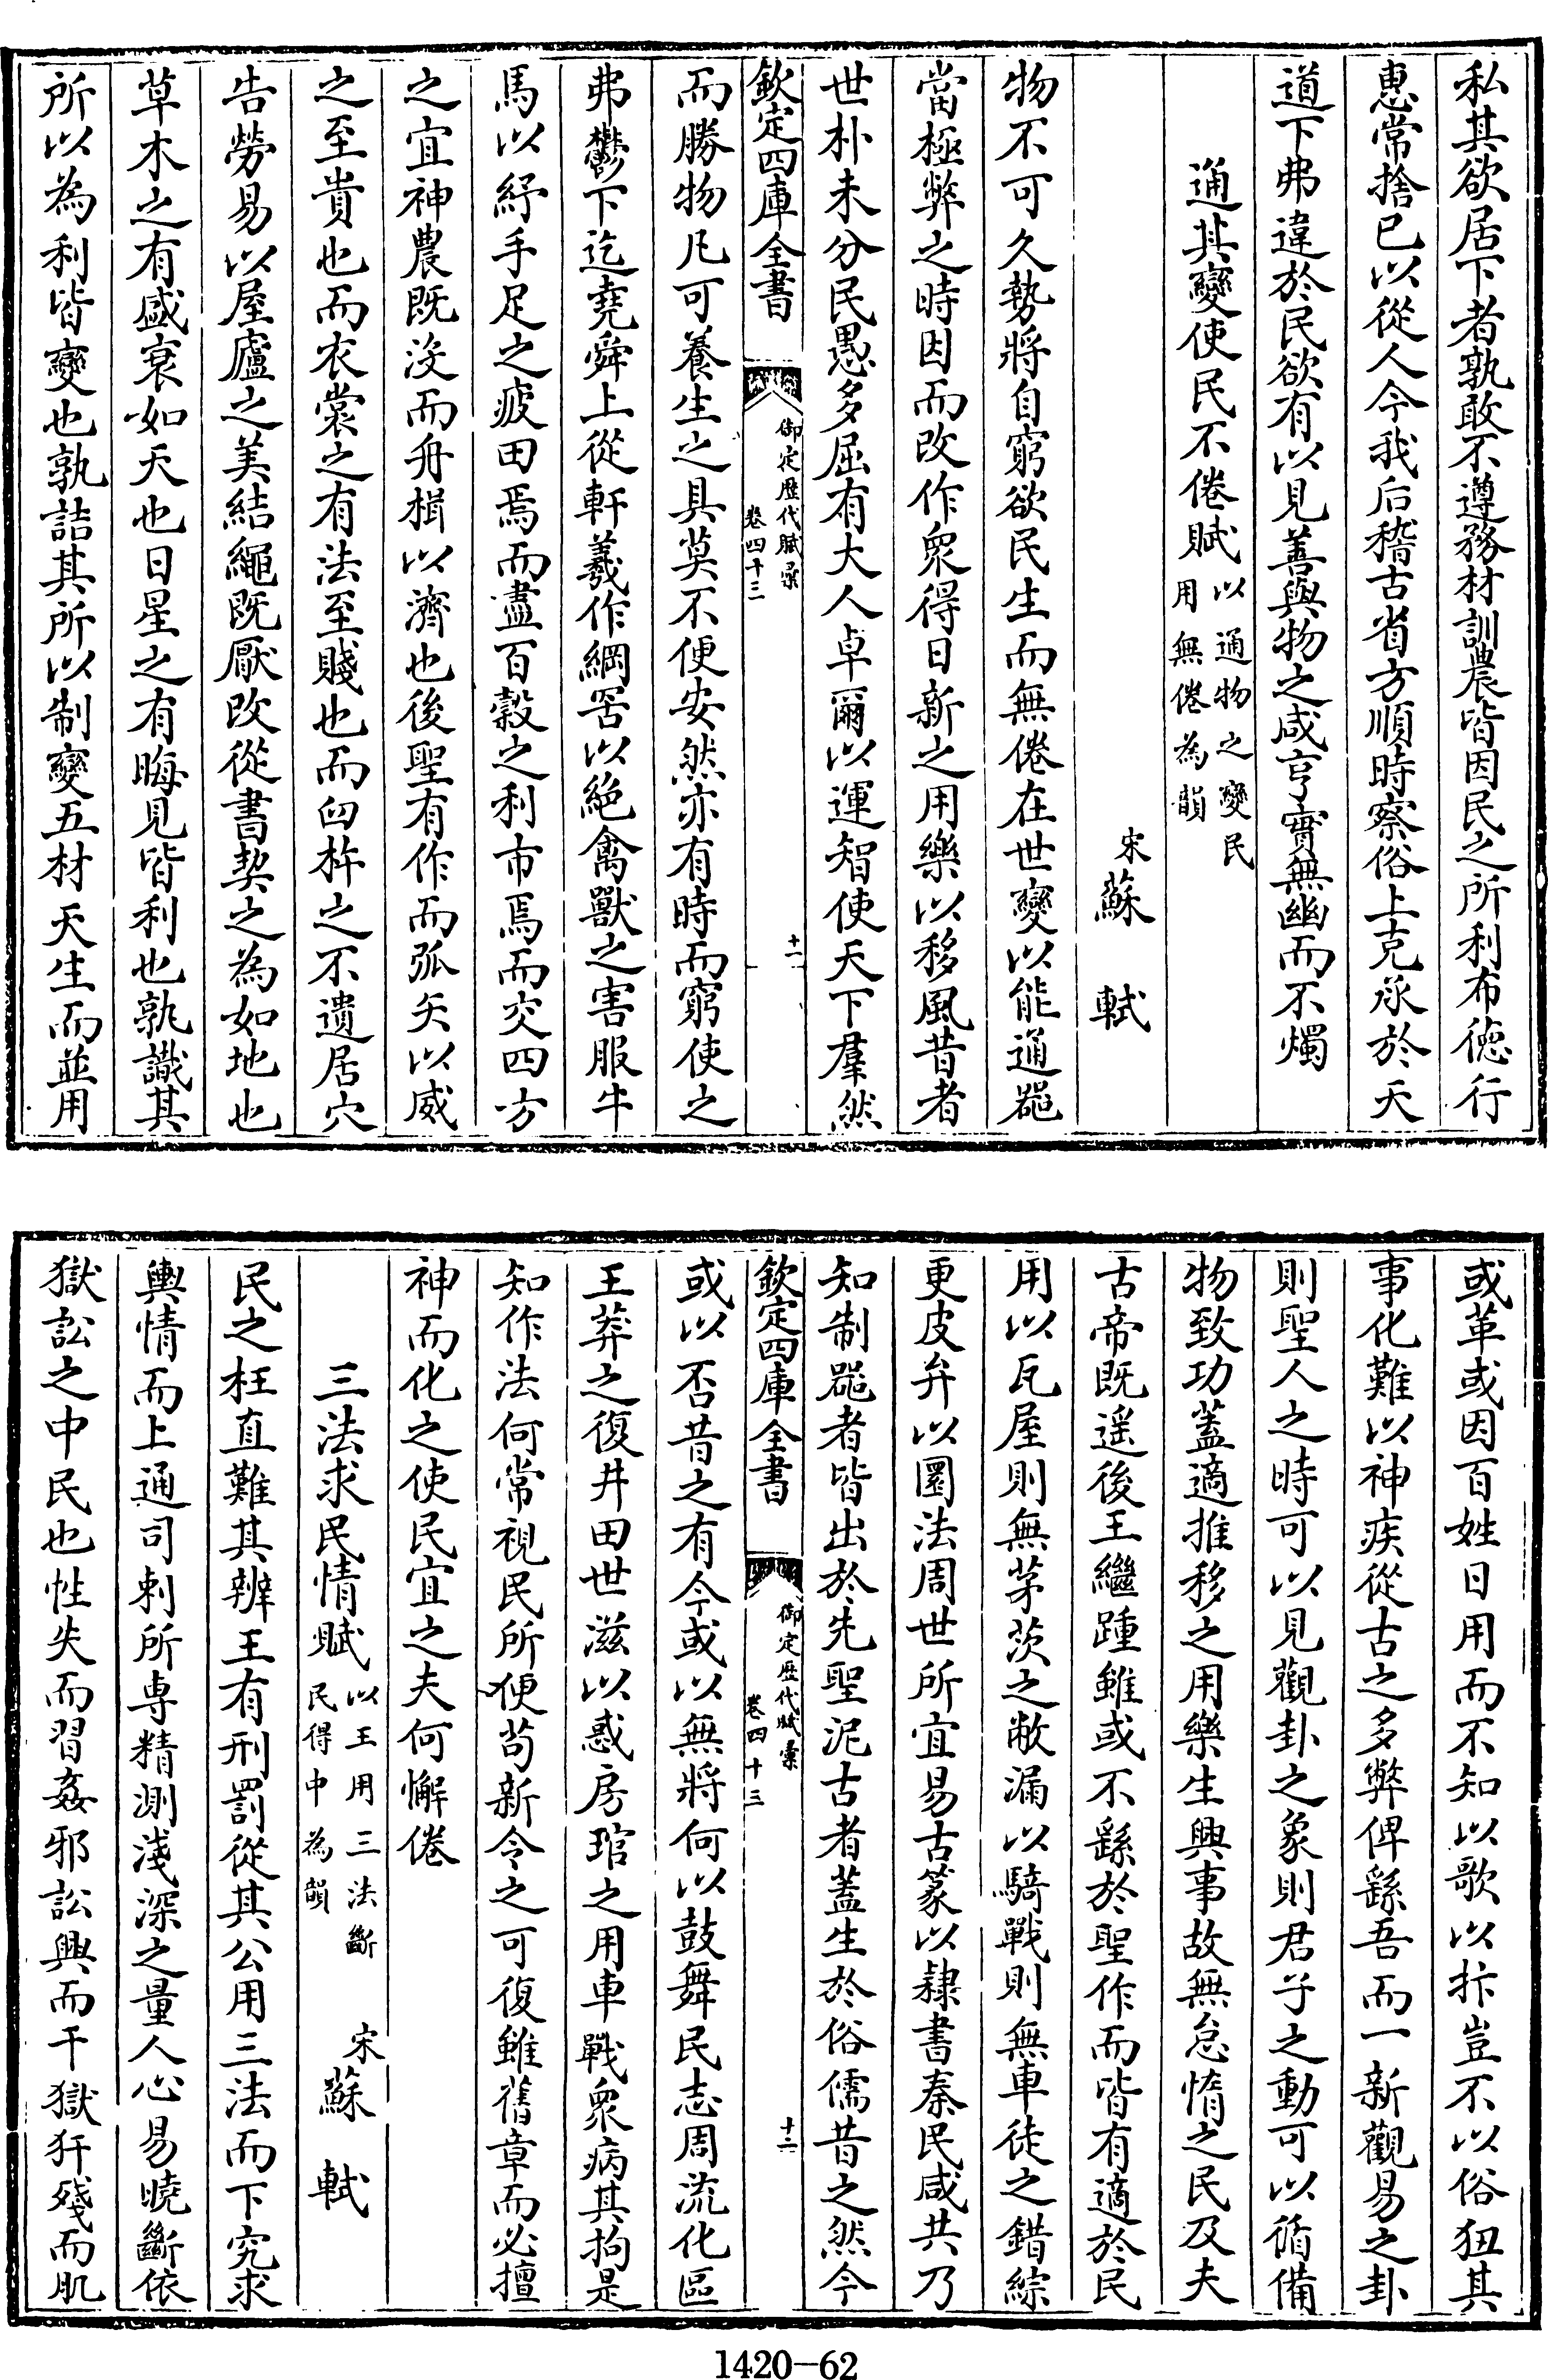 私其欲居下者孰敢不遵務材訓農皆因民之所利布德行
惠常捨已以從人今我后稽古省方順時察俗上克承於天
道下弗違於民欲有以見善與物之咸亨實無幽而不燭
通其變使民不倦賦以通物之變民用無倦為韻
宋蘇軾
物不可久勢將自窮欲民生而無倦在世變以能通器
當極弊之時因而改作衆得日新之用樂以移風昔者
世朴未分民愚多屈有大人卓爾以運智使天下羣然
欽定四庫全書 御定歷代賦彙 卷四十三 十一
而勝物凡可養生之具莫不便安然亦有時而窮使之
弗鬱下迄堯舜上從軒羲作網罟以絶禽獸之害服牛
馬以紓手足之疲田焉而盡百穀之利市焉而交四方
之宜神農既沒而舟楫以濟也後聖有作而弧矢以威
之至貴也而衣裳之有法至賤也而臼杵之不遺居穴
告勞易以屋廬之美結繩既厭改從書契之為如地也
草木之有盛衰如天也日星之有晦見皆利也孰識其
所以為利皆變也孰詰其所以制變五材天生而並用
或革或因百姓日用而不知以歌以抃豈不以俗狃其
事化難以神疾從古之多弊俾繇吾而一新觀易之卦
則聖人之時可以見觀卦之象則君子之動可以循備
物致功蓋適推移之用樂生興事故無怠惰之民及夫
古帝既遥後王繼踵雖或不繇於聖作而皆有適於民
用以瓦屋則無茅茨之敝漏以騎戰則無車徒之錯綜
更皮弁以圜法周世所宜易古篆以隸書秦民咸共乃
知制器者皆出於先聖泥古者蓋生於俗儒昔之然今
欽定四庫全書 御定歷代賦彙 卷四十三 十二
或以否昔之有今或以無將何以鼓舞民志周流化區
王莽之復井田世滋以惑房琯之用車戰衆病其拘是
知作法何常視民所便苟新令之可復雖舊章而必擅
神而化之使民宜之夫何懈倦
三法求民情賦以王用三法斷民得中為韻 宋蘇軾
民之枉直難其辨王有刑罰從其公用三法而下究求
輿情而上通司刺所專精測淺深之量人心易曉斷依
獄訟之中民也性失而習姦邪訟興而干獄犴殘而肌
1420-62